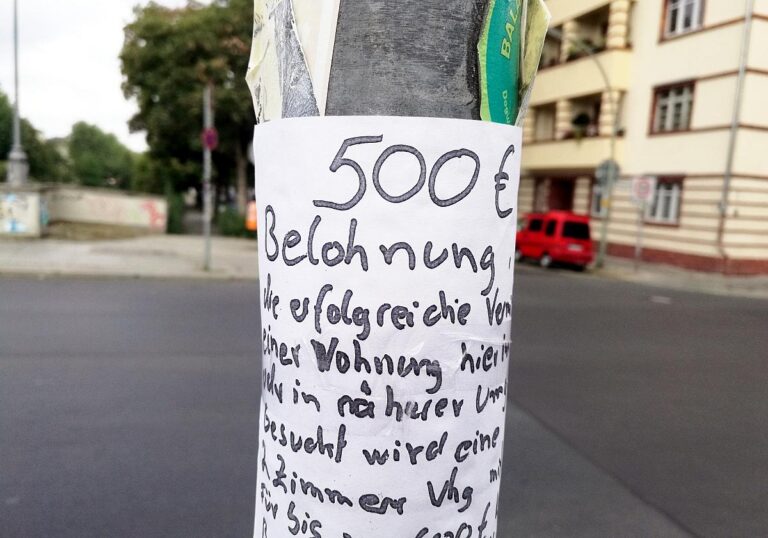 BAL
500 €
Belohnung
die erfolgreiche
einer Wohnung hier
in näherer
Gesucht wird eine
2 Zimmer Vhg
für bis